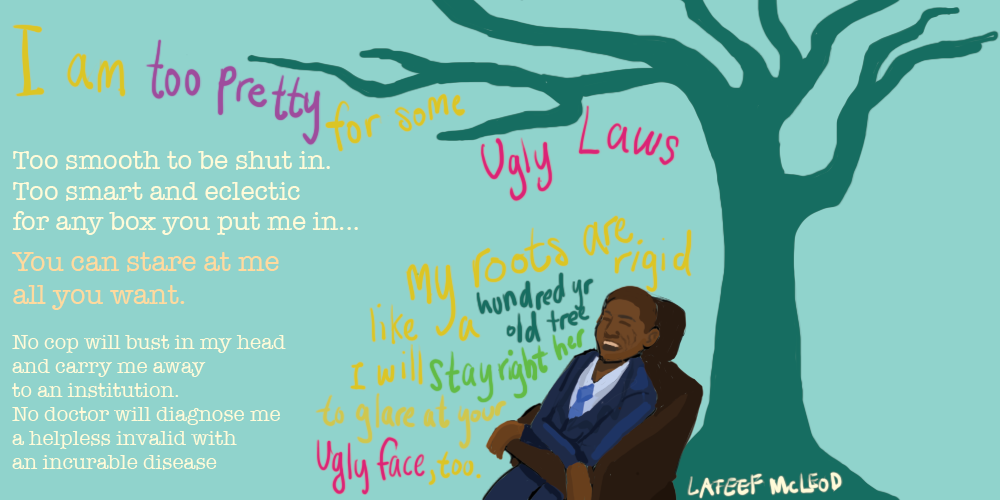 I am too pretty for some
Ugly Laws
Too smooth to be shut in.
Too smart and eclectic
for any box you put me in...
You can stare at me
all you want.
No cop will bust in my head
and carry me away
to an institution.
No doctor will diagnose me
a helpless invalid with
an incurable disease
My roots are rigid
like a hundred yr
old tree
I will stay right her
to glare at your
Ugly face, too.
LATEEF McLEOD